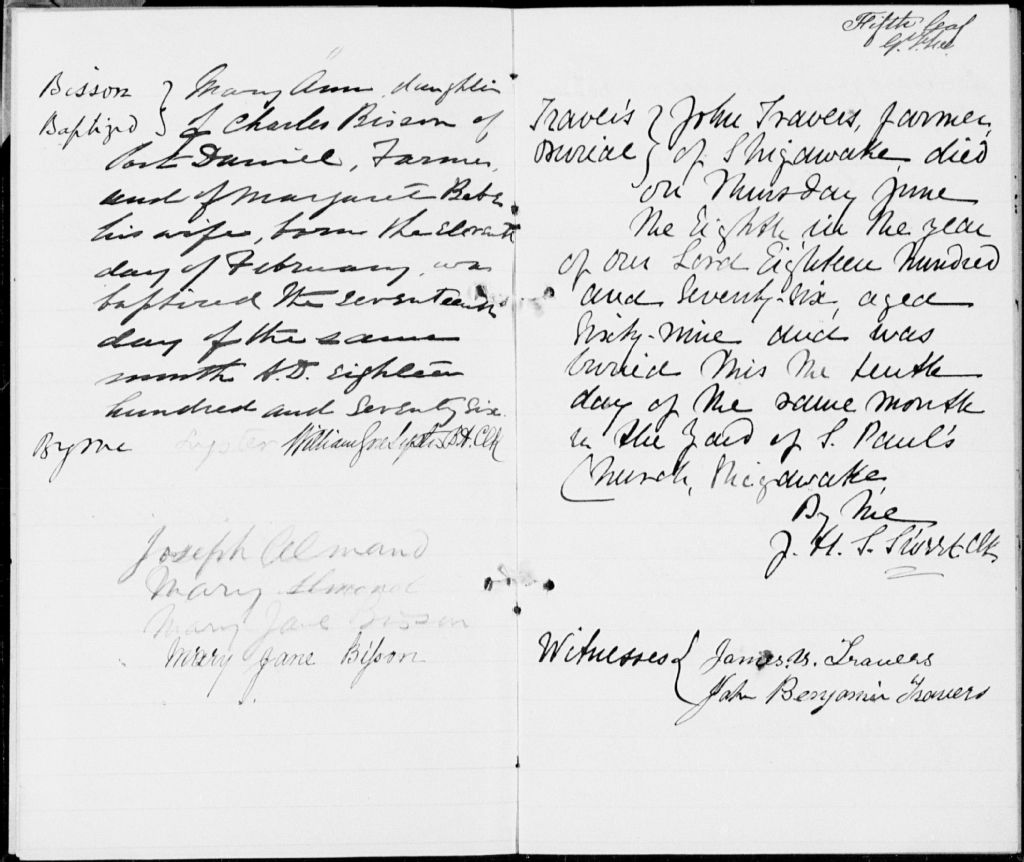 Bisson } Mary Ann, daughter
Baptized } of Charles Bisson of
Port Daniel, Farmer,
and of Margaret
his wife, born the eleventh
day of February, was
baptized the seventeenth
day of the same
month A.D. Eighteen
hundred and seventy six.
By me Lyster William Gore Lyster B.A. Clk
Joseph Almand
Mary Almond
Mary Jane Bisson
Mary Jane Bisson
Fifth leaf
Travers } John Travers, farmer,
Burial } of Shigawake died
on Thursday June
the Eighth in the year
of our Lord Eighteen hundred
and seventy-six, aged
sixty-nine and was
buried this the tenth
day of the same month
in the yard of S. Paul's
Church, Shigawake,
By me
J. H. S. Clk
Witnesses { James W. Travers
John Benjamin Travers